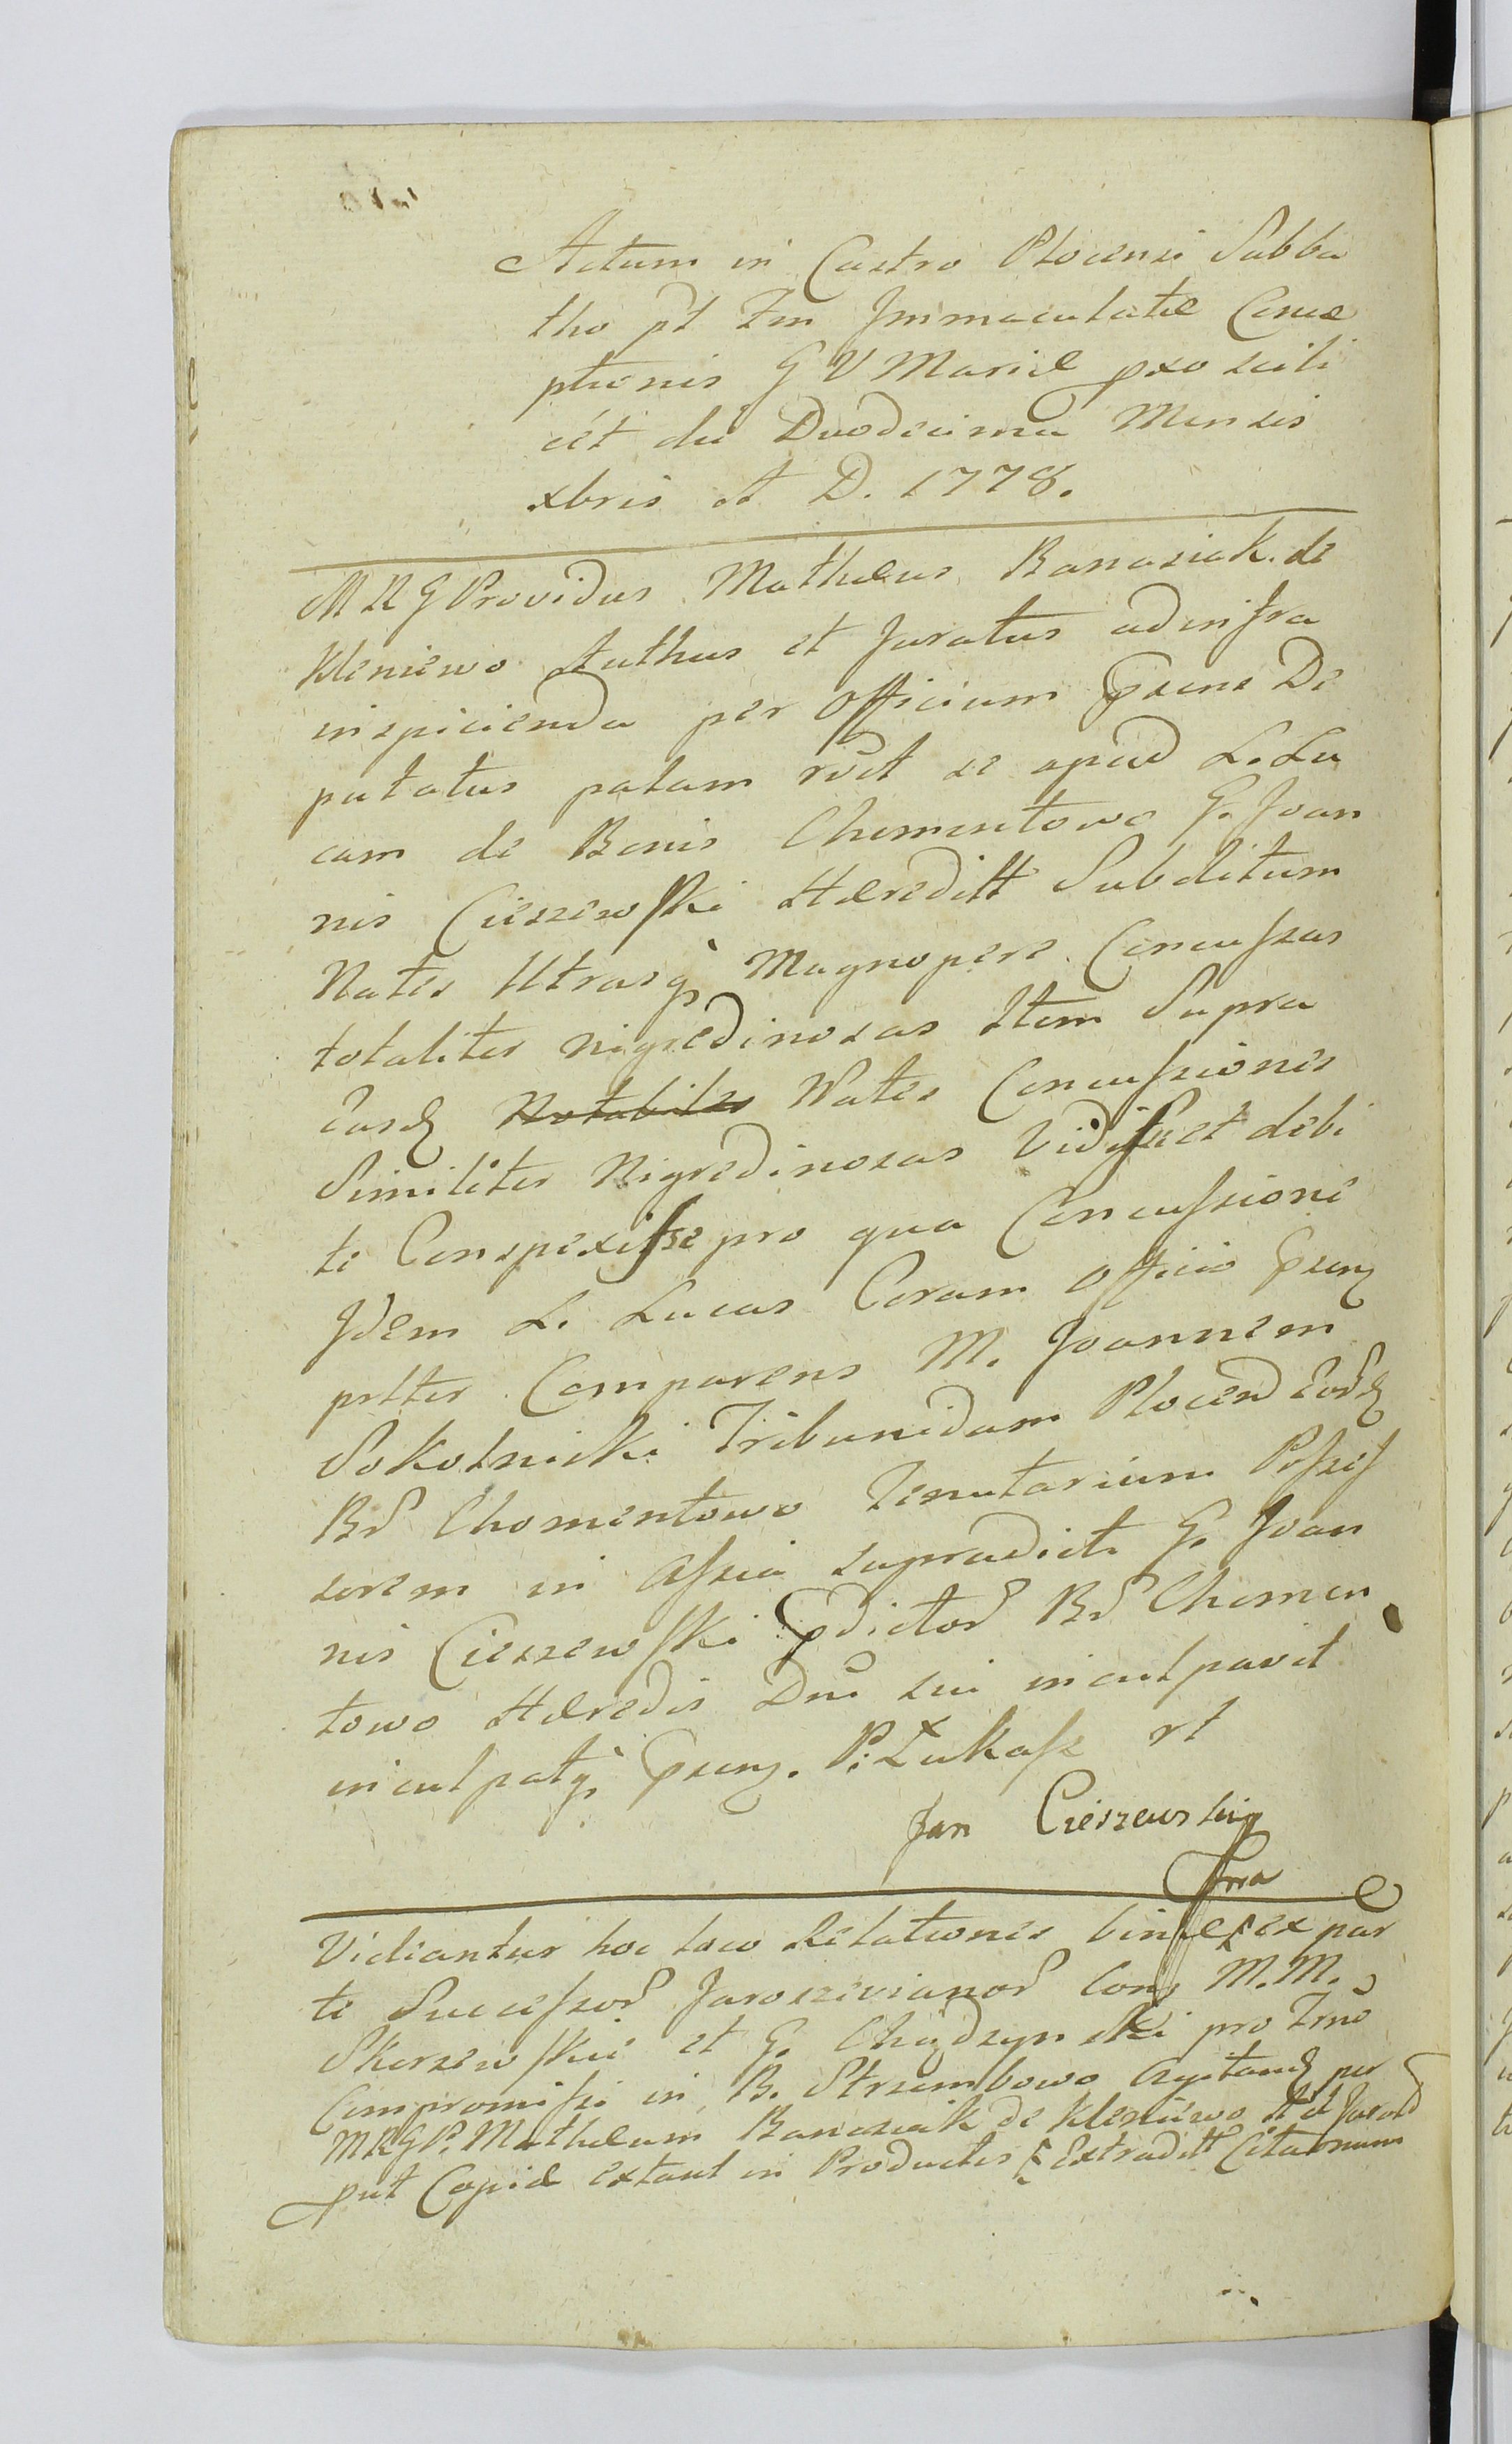 Actum in Castro Plocensi Sabba
tho pt Fm Immaculatæ Conce
ptionis G V Mariæ pxo scili
cet die Duodecima Mensis
xbris A D. 1778.
M R G Providus Mathæus Banasiak de
Kleniewo Authus et Juratus ad infra
inspicienda per Officium psens De
putatus palam rdt se apud L. Lu
cam de Bonis Chomentowo G. Joan
nis Cieszewski Hæreditt Subditum
Nates Utrasq Magnopere Concussas
totaliter nigredinosas Item Supra
Easd Notabiles Nates Concussiones
Similiter Nigredinosas Vidisse et debi
te Conspexisse pro qua Concussione
Idem L. Lucas Coram Officio psenq
psltter Comparens M. Joannem
Sokolnicki Tribunidam Plocen Eord
Br Chomentowo Tenutarium Posses
sorem in Assia supradicti G. Joan
nis Cieszewski pdictor Br Chomen
towo Hæredis Dni sui inculpavit
inculpatq psenq. P: Łukasz rt
Jan Cieszewskiy
mra
Vidiantur hoc loco Relationes binæ ex par
te Successor Jaroszevianor Con M. M.
Skarzewskie et G. Chądzynski pro Fmo
Compromissi in B. Strzembowo Agitand per
M R G P. Mathæum Banasiak de Kleniewo At et Jurat
put Copiæ extant in Productis Extraditt Citaonum